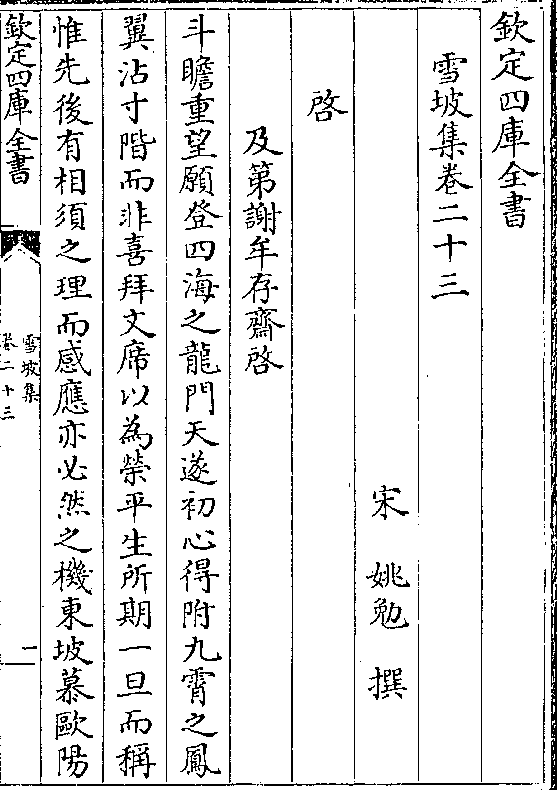 欽定四庫全書
雪坡集卷二十三
宋 姚勉 撰
啓
及第謝牟存齋啓
斗瞻重望願登四海之龍門天遂初心得附九霄之鳳
翼沾寸階而非喜拜文席以為榮平生所期一旦而稱
惟先後有相須之理而感應亦必然之機東坡慕歐陽
欽定四庫全書
雪坡集
卷二十三
一